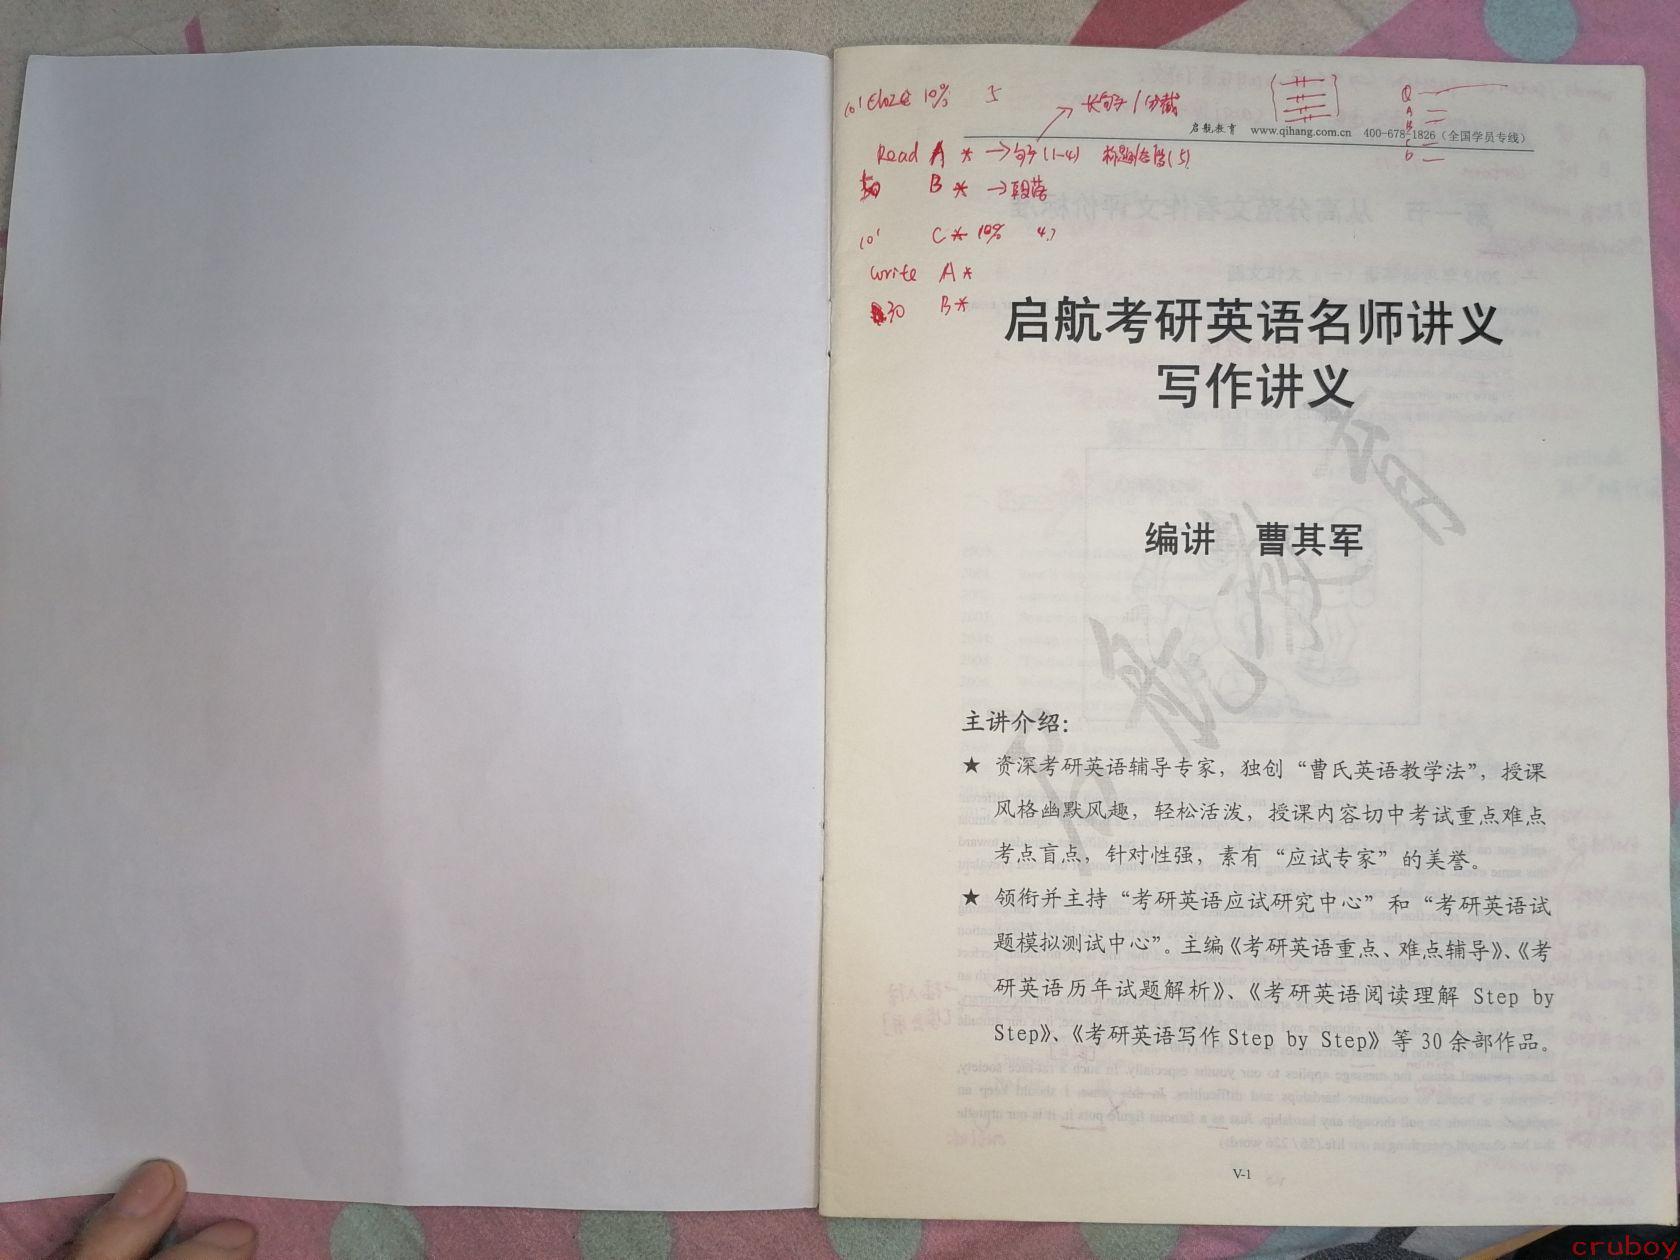 10' Cloze 10% 5
启航教育 www.qihang.com.cn 400-678-1826（全国学员专线）
Read A * →句子(1-4) 标题(5)
B * →段落
10' C * 10%
Write A *
30 B *
Q
A
B
C
D
启航考研英语名师讲义
写作讲义
编讲 曹其军
启航教育
主讲介绍：
★ 资深考研英语辅导专家，独创“曹氏英语教学法”，授课
风格幽默风趣，轻松活泼，授课内容切中考试重点难点
考点盲点，针对性强，素有“应试专家”的美誉。
★ 领衔并主持“考研英语应试研究中心”和“考研英语试
题模拟测试中心”。主编《考研英语重点、难点辅导》、《考
研英语历年试题解析》、《考研英语阅读理解 Step by
Step》、《考研英语写作 Step by Step》等 30 余部作品。
V-1
cruboy